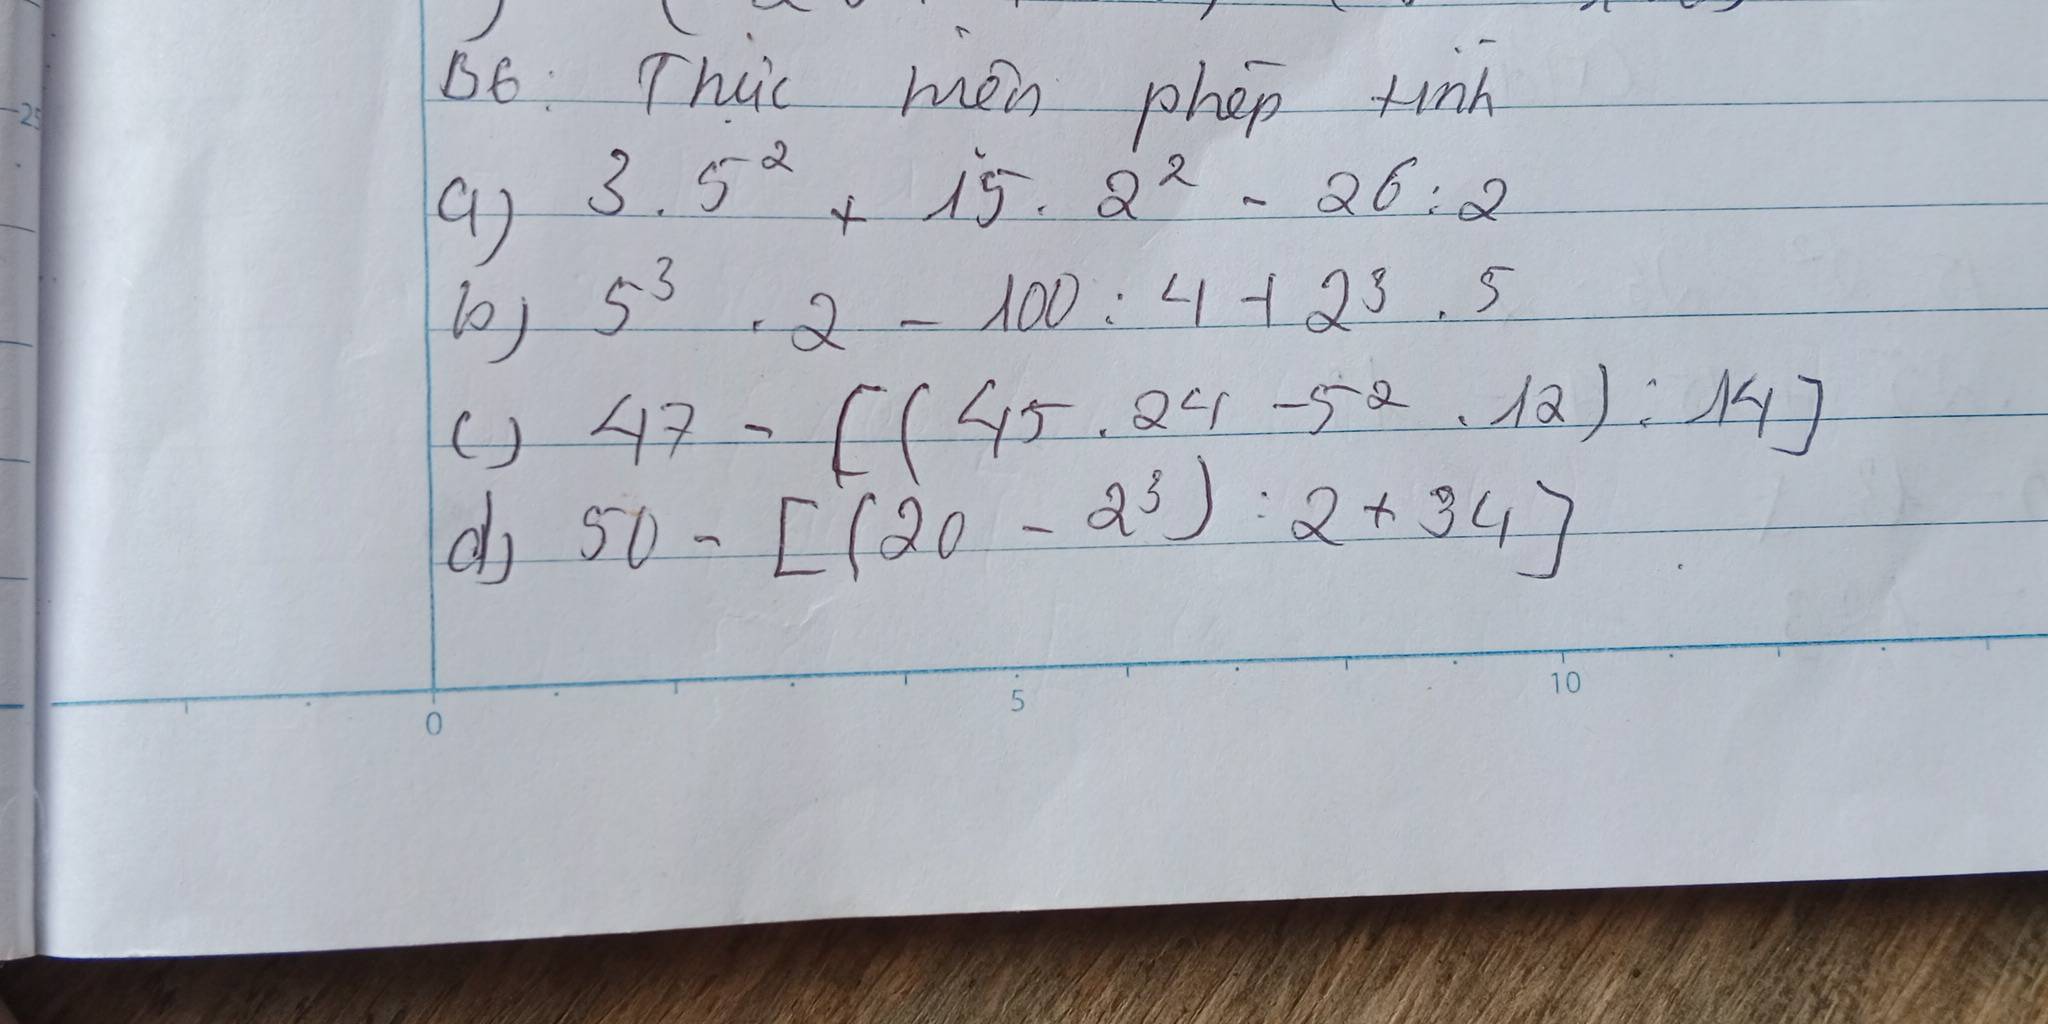 B6: Thực hiện phép tính
a) 3 . 5² + 15 . 2² - 26 : 2
b) 5³ . 2 - 100 : 4 + 2³ . 5
c) 47 - [(45 . 24 - 5² . 12) : 14]
d) 50 - [(20 - 2³) : 2 + 34]
0 5 10
25